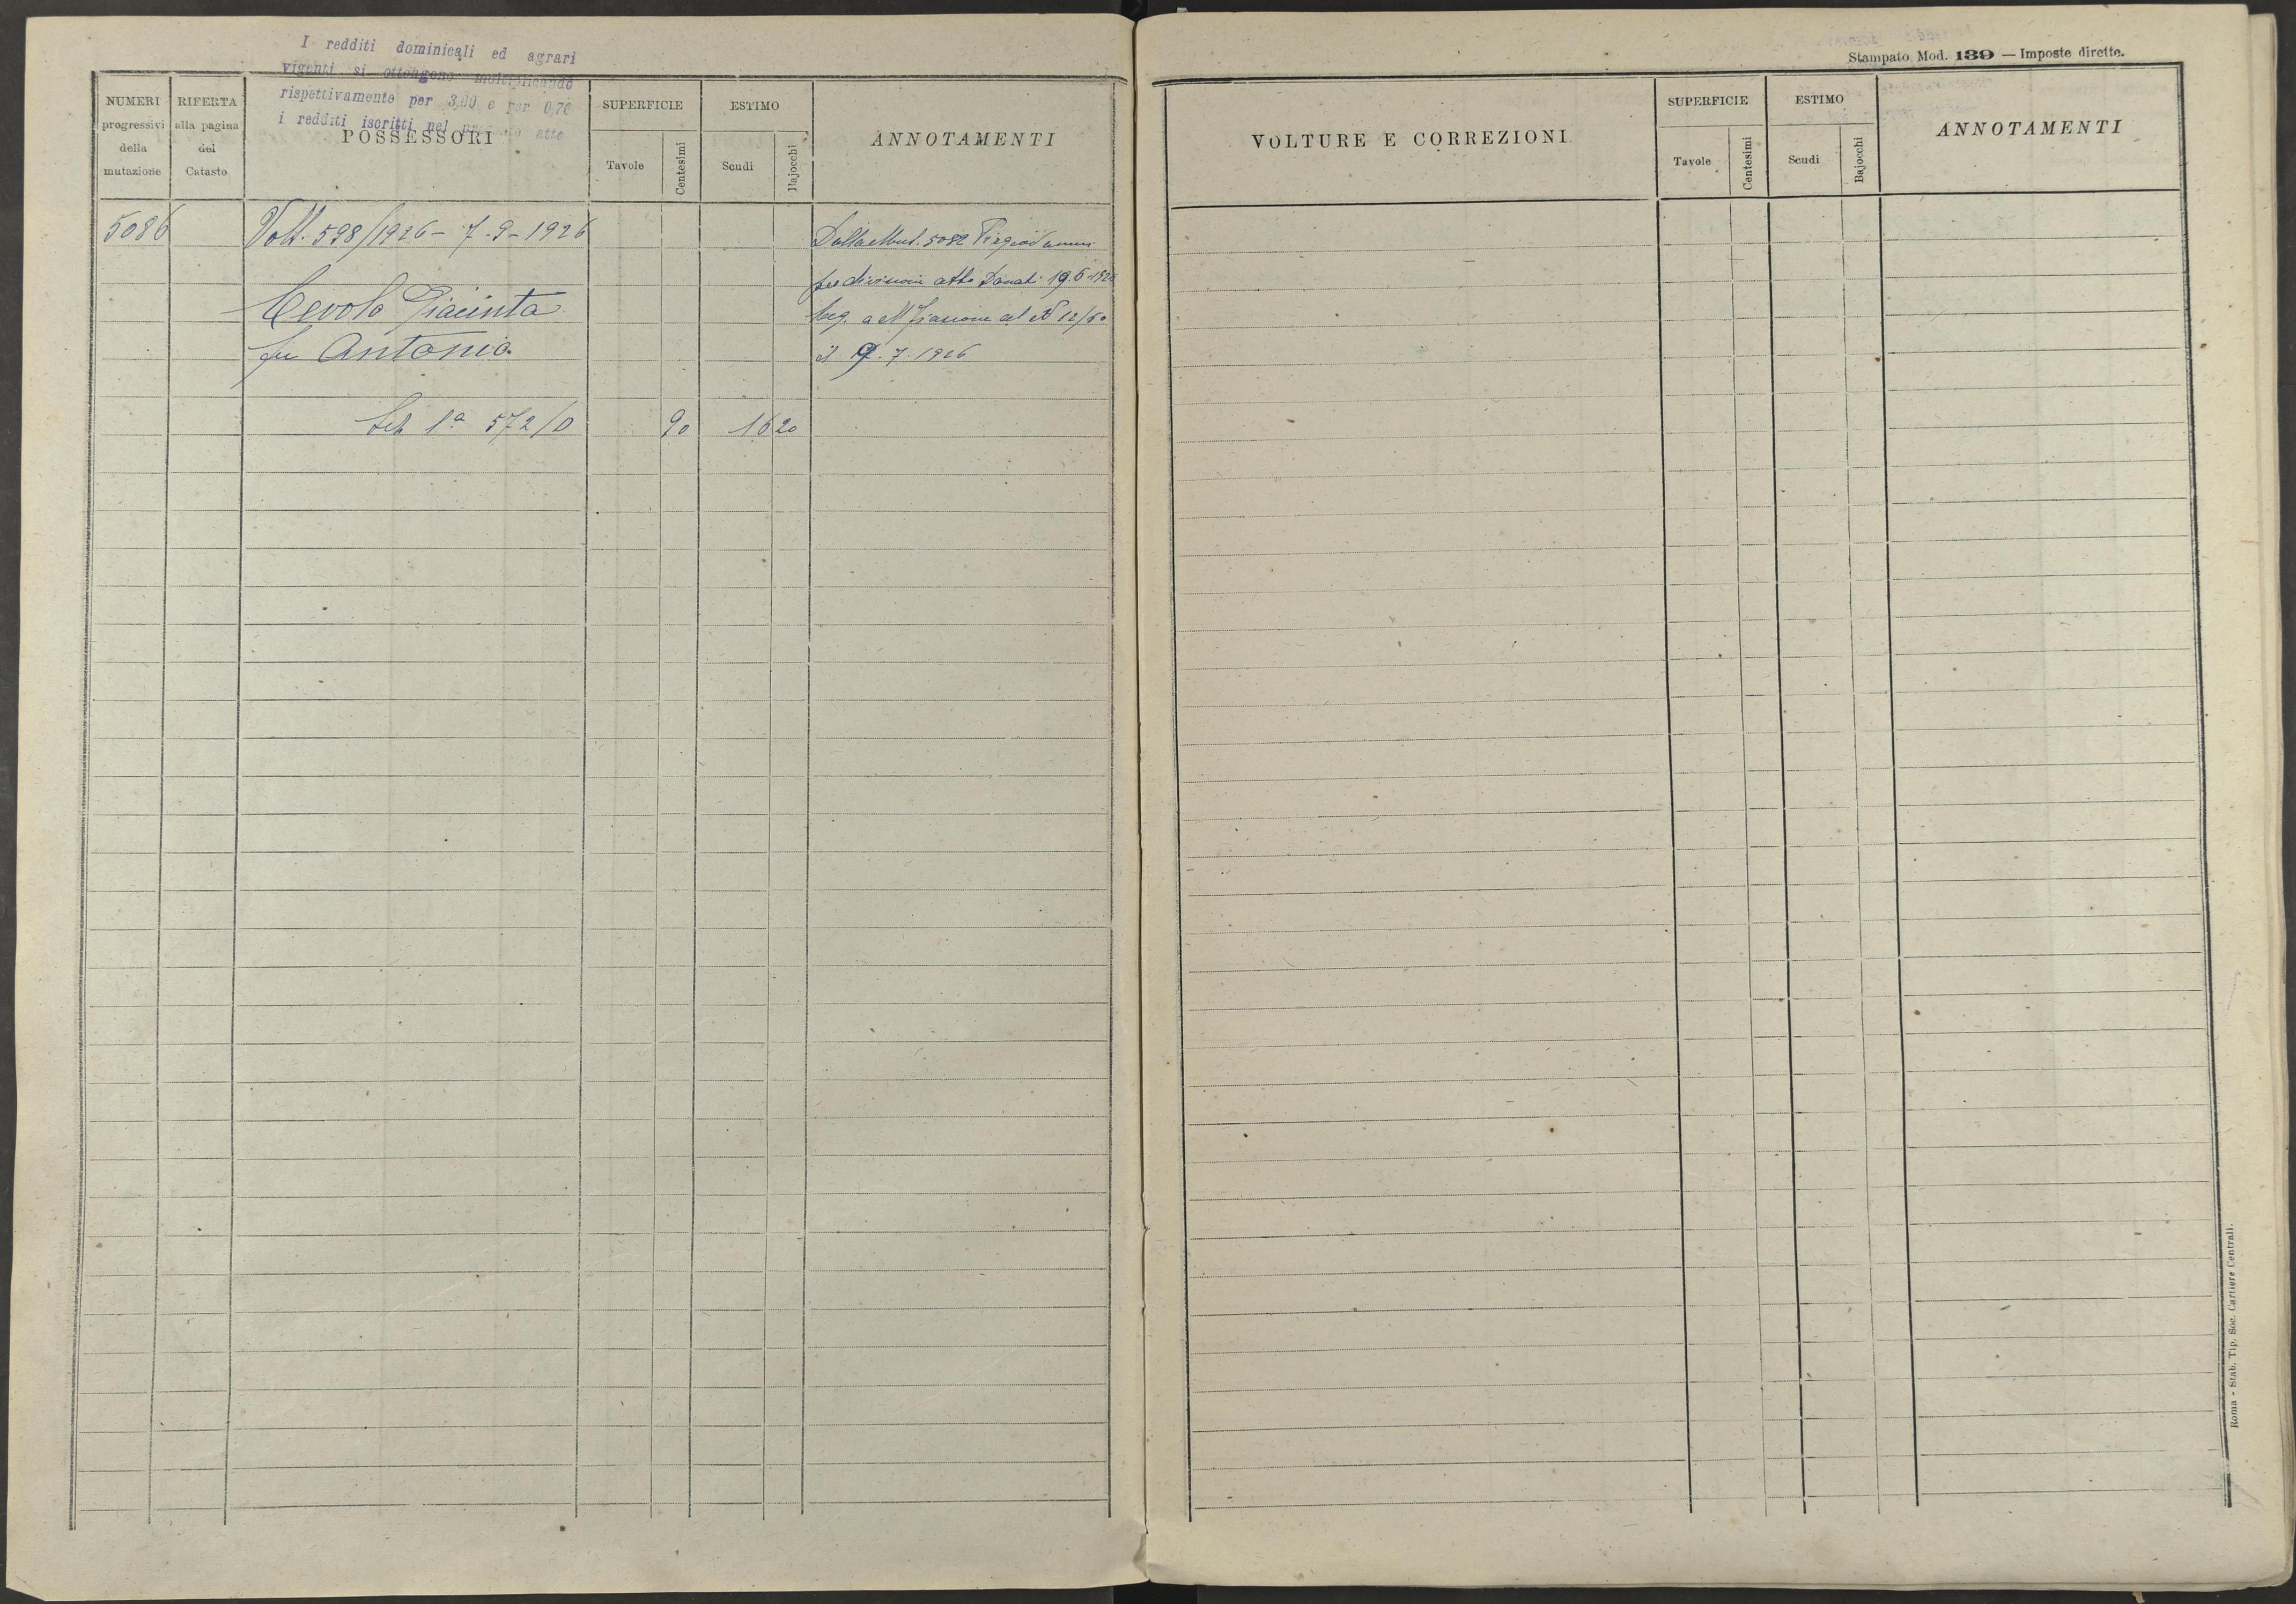 I redditi dominicali ed agrari
vigenti si ottengono moltiplicando
rispettivamente per 3,00 e per 0,70
i redditi iscritti nel presente atto
NUMERI
progressivi
della
mutazione
RIFERTA
alla pagina
del
Catasto
POSSESSORI
SUPERFICIE
Tavole
Centesimi
ESTIMO
Scudi
Bajocchi
ANNOTAMENTI
5086
Volt. 598/1926 - 7-9-1926
Dalla Mut. 5082
per divisioni atto Donati 19.6.1926
Cevolo Giacinta
Reg. a al N 12/60
fu Antonio
il 9.7.1926
1ª 572/D 90 16 20
Stampato Mod. 139 — Imposte dirette.
VOLTURE E CORREZIONI
SUPERFICIE
Tavole
Centesimi
ESTIMO
Scudi
Bajocchi
ANNOTAMENTI
Roma - Stab. Tip. Soc. Cartiere Centrali.